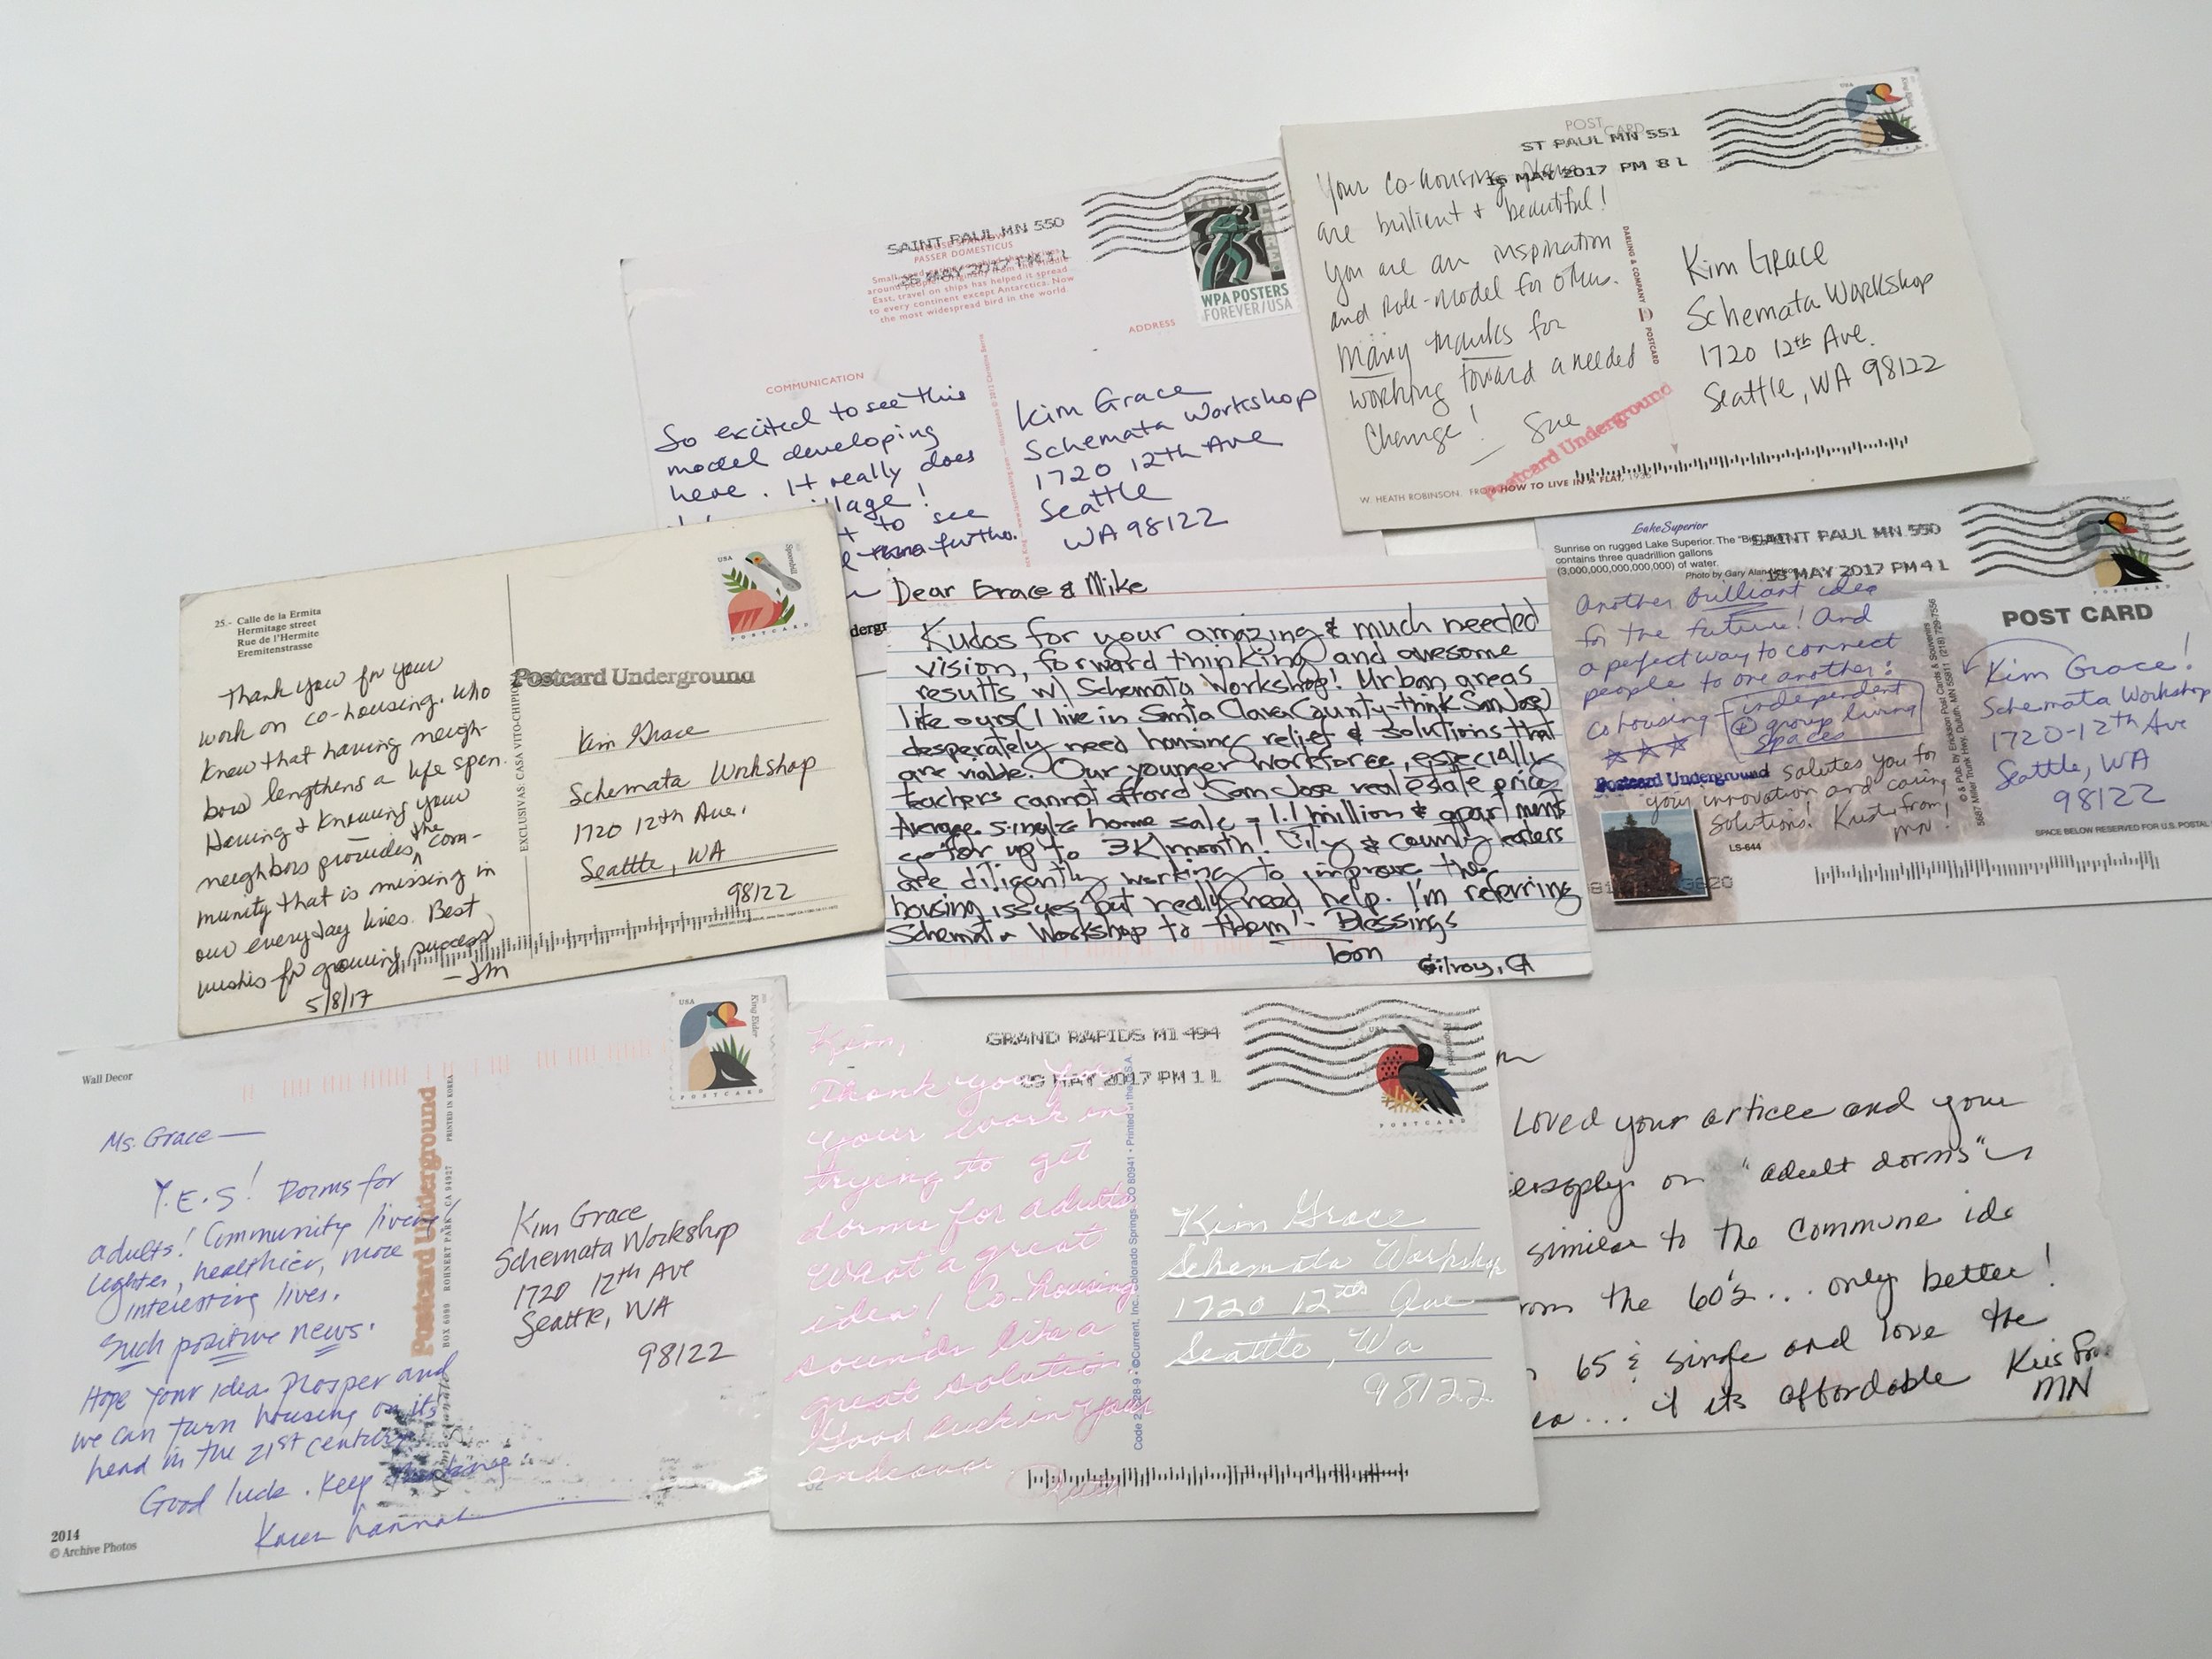 POST CARD
ST PAUL MN 551
16 MAY 2017 PM 8 L
USA
POSTCARD
Your co-housing plans
are brillient & beautiful!
You are an inspiration
and role-model for others.
Many thanks for
working toward a needed
Change!
Sue
DARLING & COMPANY
POSTCARD
Kim Grace
Schemata Workshop
1720 12th Ave.
Seattle, WA 98122
Postcard Underground
W. HEATH ROBINSON. FROM HOW TO LIVE IN A FLAT, 1936
SAINT PAUL MN 550
25 MAY 2017 PM 1 L
HOUSE SPARROW
PASSER DOMESTICUS
around people. Originally from the Middle
East, travel on ships has helped it spread
to every continent except Antarctica. Now
the most widespread bird in the world
WPA POSTERS
FOREVER/USA
ADDRESS
COMMUNICATION
So excited to see this
model developing
here. It really does
lage!
to see
Kim Grace
Schemata Workshop
1720 12th Ave
Seattle
WA 98122
Lake Superior
Sunrise on rugged Lake Superior. The "Big
contains three quadrillion gallons
(3,000,000,000,000,000) of water.
Photo by Gary Alan Nelson
SAINT PAUL MN 550
18 MAY 2017 PM 4 L
POST CARD
Another brilliant idea
for the future! And
a perfect way to connect
people to one another:
cohousing - independent
+ group living
spaces
Postcard Underground salutes you for
your innovation and caring
solutions! Kristi from
MN!
LS-644
© & Pub. by Erickson Post Cards & Souvenirs
5687 Miller Trunk Hwy. Duluth, MN 55811 (218) 729-7556
Kim Grace!
Schemata Workshop
1720-12th Ave
Seattle, WA
98122
SPACE BELOW RESERVED FOR U.S. POSTAL
25.- Calle de la Ermita
Hermitage street
Rue de l'Hermite
Eremitenstrasse
USA
Spoonbill
POSTCARD
Thank you for your
work on co-housing. Who
knew that having neigh-
bors lengthens a life span.
Having & knowing your
neighbors provides the com-
munity that is missing in
our everyday lives. Best
wishes for growing success
- JM
5/8/17
EXCLUSIVAS: CASA VITO-CHIPION
Postcard Underground
Kim Grace
Schemata Workshop
1720 12th Ave.
Seattle, WA
98122
dergr
Dear Grace & Mike
Kudos for your amazing & much needed
vision, forward thinking and awesome
results w/ Schemata Workshop! Urban areas
like ours (I live in Santa Clara County-think San Jose)
desperately need housing relief & solutions that
are viable. Our younger workforce, especially
teachers cannot afford San Jose real estate prices
Average single home sale = 1.1 million & apartments
go for up to 3K/month! City & County leaders
are diligently working to improve the
housing issues but really need help. I'm referring
Schemata Workshop to them! - Blessings
Gilroy, CA
Wall Decor
USA
King Eider
POSTCARD
Ms. Grace—
Y.E.S! Dorms for
adults! Community living!
Lighter, healthier, more
interesting lives.
Such positive news.
Hope your ideas prosper and
we can turn housing on its
head in the 21st century.
Good luck. Keep thinking
Postcard Underground
BOX 6099 ROHNERT PARK, CA 94927
PRINTED IN KOREA
Kim Grace
Schemata Workshop
1720 12th Ave
Seattle, WA
98122
2014
© Archive Photos
GRAND RAPIDS MI 494
09 MAY 2017 PM 1 L
USA
POSTCARD
Kim,
Thank you for
your work in
trying to get
dorms for adults
What a great
idea! Co-housing
sounds like a
great solution
Good luck in your
endeavor.
Kim Grace
Schemata Workshop
1720 12th Ave
Seattle, Wa
98122
Loved your article and your
on "adult dorms"
similar to the Commune
the 60's... only better!
65 & single and love the
if its affordable
MN